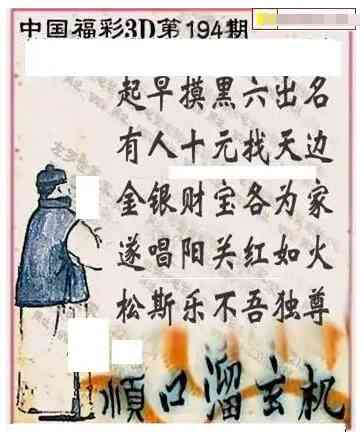 中国福彩3D第194期
起早摸黑六出名
有人十元找天边
金银财宝各为家
遂唱阳关红如火
松斯乐不吾独尊
顺口溜玄机